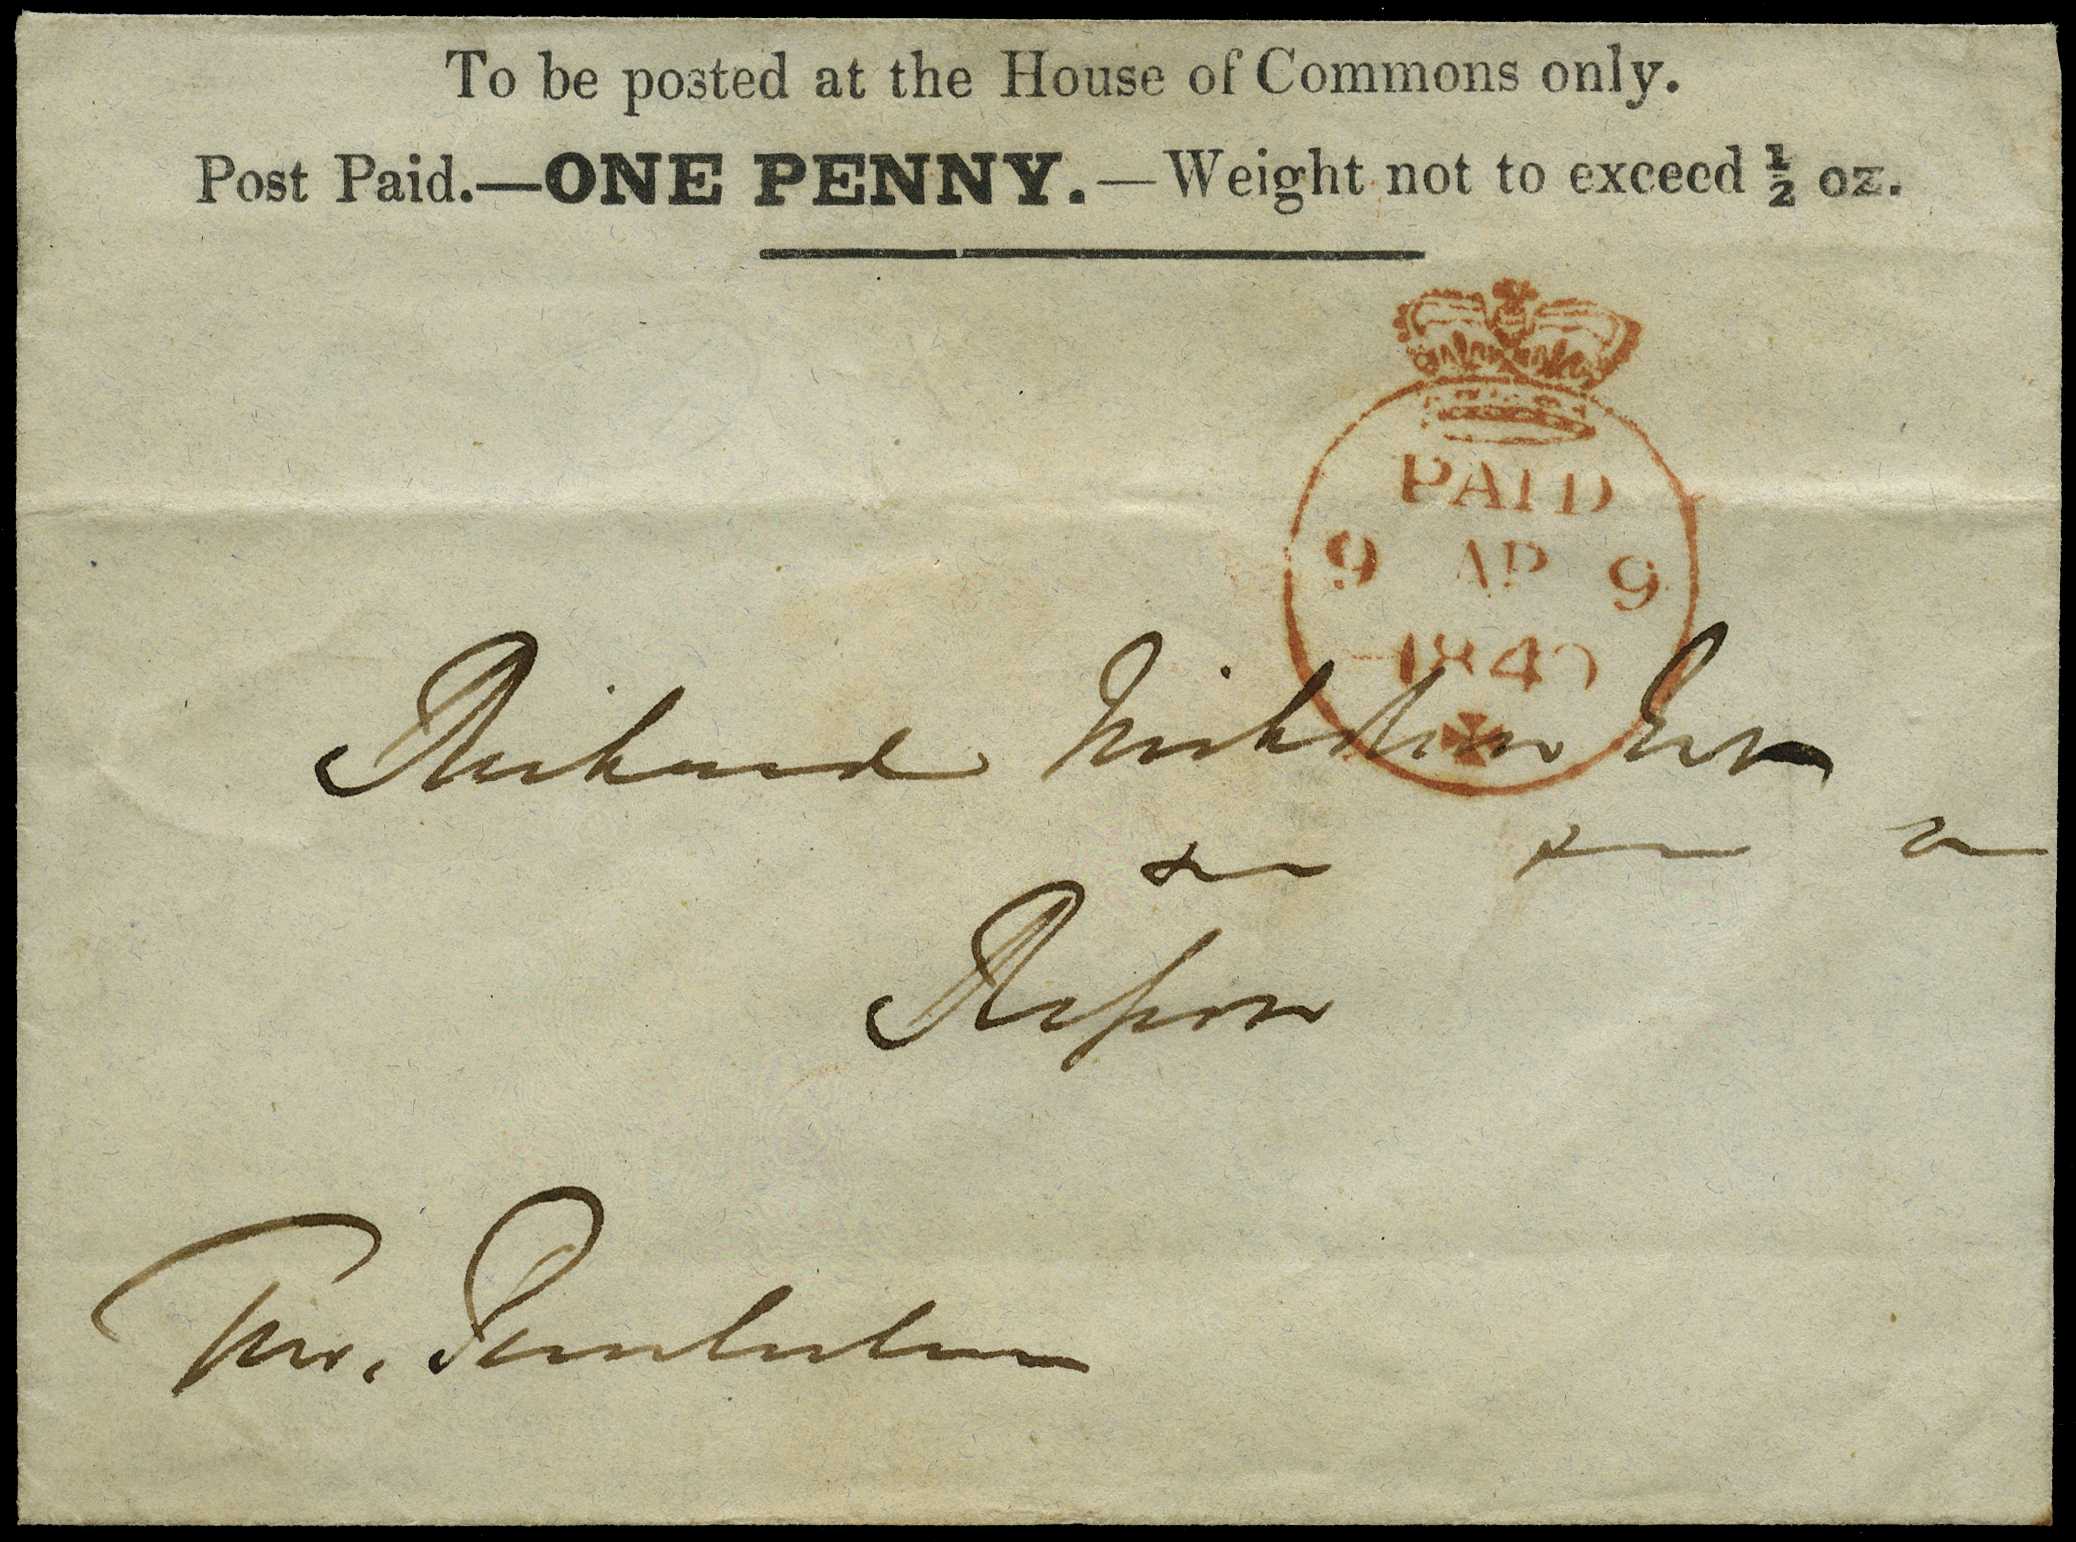 To be posted at the House of Commons only.
Post Paid.—ONE PENNY.—Weight not to exceed ½ oz.
PAID
9 AP 9
1840
Richard Nicholson Esq
Ripon
Pemberton